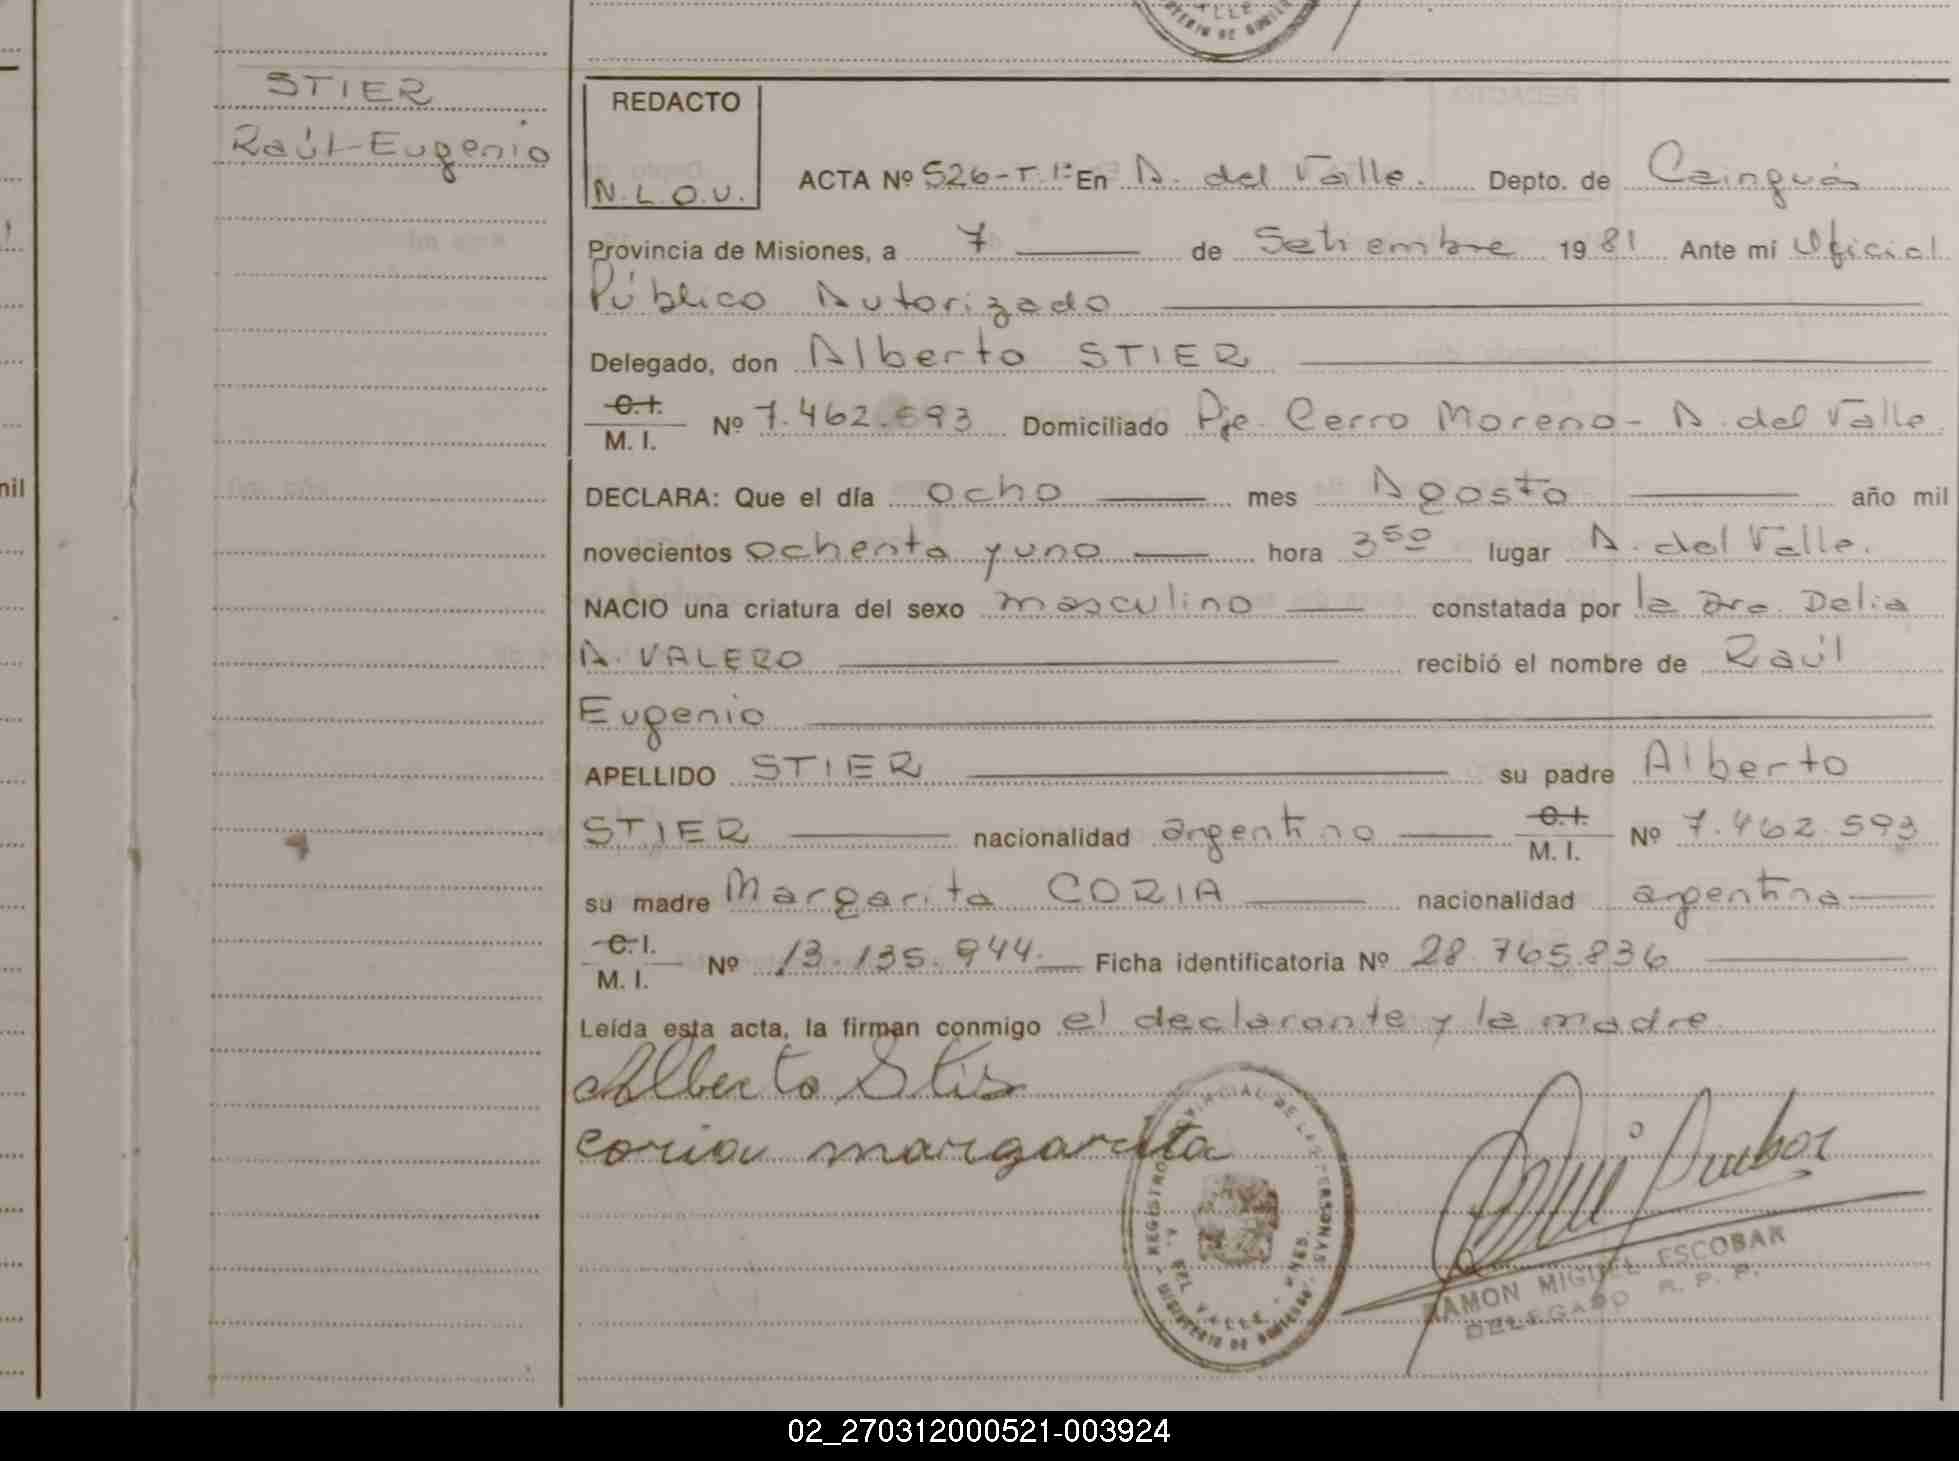 STIER
Raúl-Eugenio
REDACTO
N.L.O.V.
ACTA Nº 526-T.1º En A. del Valle. Depto. de Cainguás
Provincia de Misiones, a 7 de Setiembre 1981 Ante mi Oficial
Público Autorizado
Delegado, don Alberto STIER
C.I.
M. I. Nº 7.462.593 Domiciliado Pje. Cerro Moreno - A. del Valle.
DECLARA: Que el día ocho mes Agosto año mil
novecientos ochenta y uno hora 3⁵⁰ lugar A. del Valle.
NACIO una criatura del sexo masculino constatada por la Dra. Delia
A. VALERO recibió el nombre de Raúl
Eugenio
APELLIDO STIER su padre Alberto
STIER nacionalidad argentino C.I. M. I. Nº 7.462.593
su madre Margarita CORIA nacionalidad argentina
C.I.
M. I. Nº 13.135.944. Ficha identificatoria Nº 28.765.836
Leída esta acta, la firman conmigo el declarante y la madre
Alberto Stier
coria margarita
REGISTRO PROVINCIAL DE LAS PERSONAS
A. DEL VALLE - MNES.
MINISTERIO DE GOBIERNO
RAMON MIGUEL ESCOBAR
DELEGADO R. P. P.
02_270312000521-003924